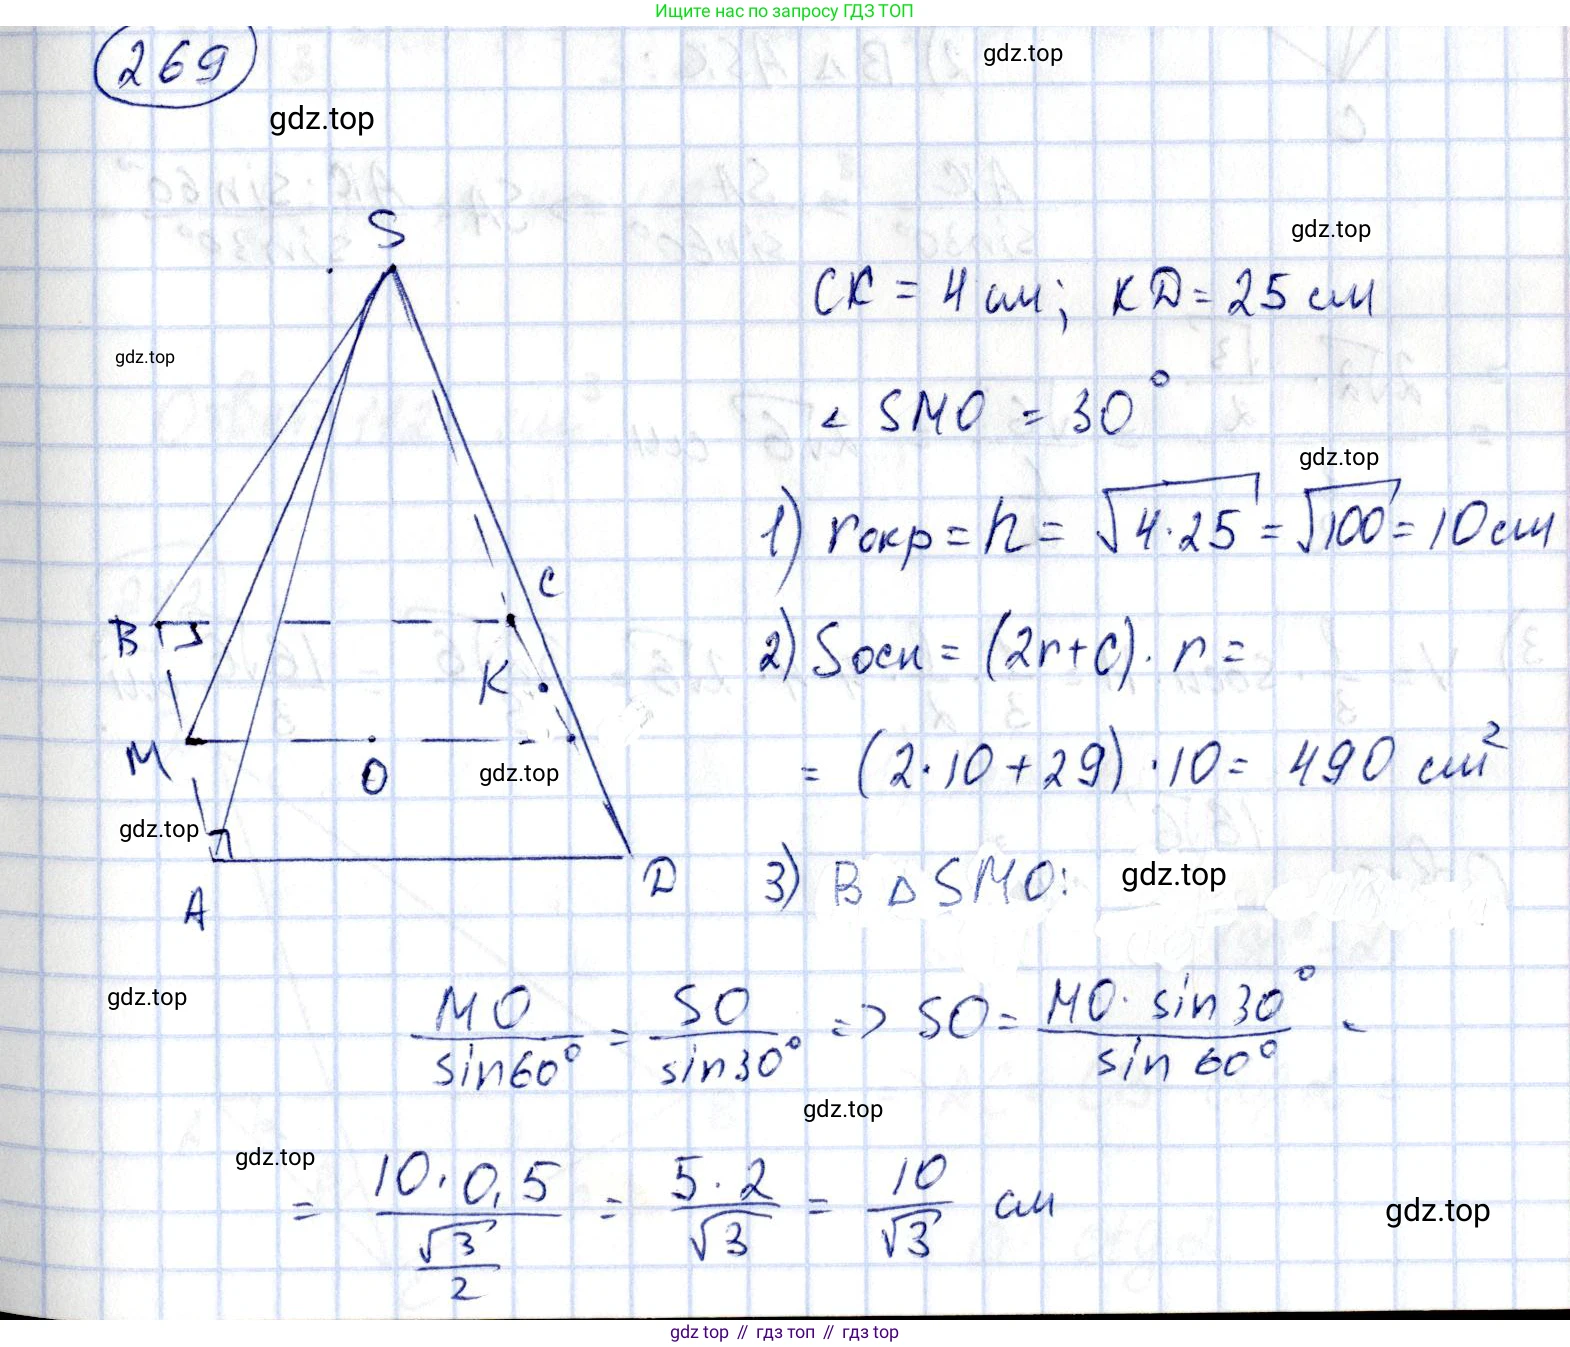 Ищите нас по запросу ГДЗ ТОП
269
gdz.top
gdz.top
S
gdz.top
CK = 4 см; KD = 25 см
gdz.top
∠ SMO = 30°
gdz.top
1) rокр = h = √4·25 = √100 = 10 см
C
B
2) Sосн = (2r+c)·r =
K
M
O
gdz.top
= (2·10+29)·10 = 490 см²
gdz.top
A
D
3) В △ SMO:
gdz.top
gdz.top
MO/sin60° = SO/sin30° => SO = MO·sin30°/sin 60° =
gdz.top
gdz.top
= 10·0,5/(√3/2) = 5·2/√3 = 10/√3 см
gdz.top
gdz top // гдз топ // gdz top